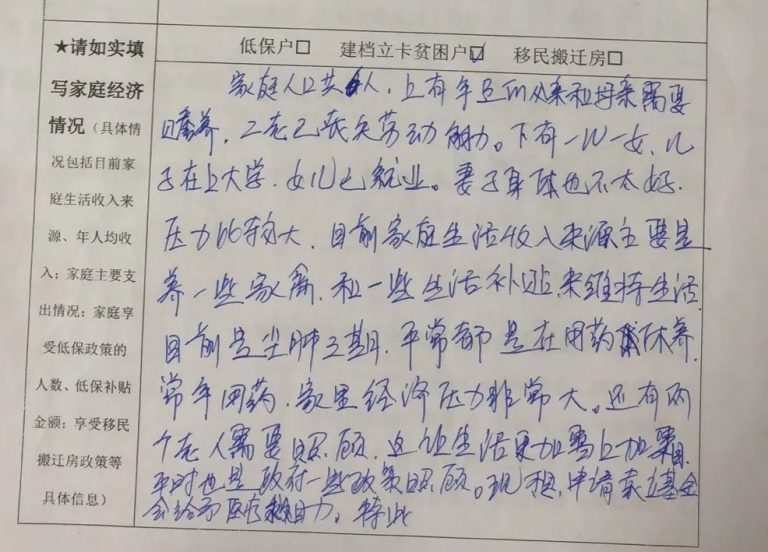 ★请如实填
写家庭经济
情况（具体情
况包括目前家
庭生活收入来
源、年人均收
入；家庭主要支
出情况；家庭享
受低保政策的
人数、低保补贴
金额；享受移民
搬迁房政策等
具体信息）
低保户□ 建档立卡贫困户☑ 移民搬迁房□
家庭人口共6人，上有年迈的父亲和母亲需要
赡养，二老已丧失劳动能力。下有一儿一女，儿
子在上大学，女儿已就业。妻子身体也不太好，
压力比较大，目前家庭生活收入来源主要是
养一些家禽，和一些生活补贴来维持生活
目前是尘肺三期，平常都是在用药休养，
常年用药，家里经济压力非常大。还有两
个老人需要照顾，这让生活更加雪上加霜，
平时也是政府一些政策照顾。现想申请 基金
会给予医疗 助力。特此